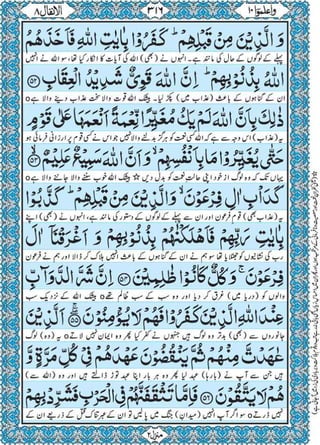 واعلموا ١٠ ٣١٦ الانفال ٨
وَ الَّذِیْنَ مِنْ قَبْلِهِمْ ؕ كَفَرُوْا بِاٰیٰتِ اللّٰهِ فَاَخَذَهُمُ
پہلے کے لوگوں کے حال کی مانند ہے۔ انہوں نے (بھی) اللہ کی آیات کا انکار کیا تھا، سو اللہ نے انہیں
اللّٰهُ بِذُنُوْبِهِمْ ؕ اِنَّ اللّٰهَ قَوِیٌّ شَدِیْدُ الْعِقَابِ ۵۲
ان کے گناہوں کے باعث (عذاب میں) پکڑ لیا۔ بیشک اللہ قوت والا سخت عذاب دینے والا ہے o
ذٰلِكَ بِاَنَّ اللّٰهَ لَمْ یَكُ مُغَیِّرًا نِّعْمَةً اَنْعَمَهَا عَلٰی قَوْمٍ
یہ (عذاب) اس وجہ سے ہے کہ اللہ کسی نعمت کو ہرگز بدلنے والا نہیں جو اس نے کسی قوم پر ارزانی فرمائی ہو
حَتّٰی یُغَیِّرُوْا مَا بِاَنْفُسِهِمْ ۙ وَ اَنَّ اللّٰهَ سَمِیْعٌ عَلِیْمٌ ۵۳
یہاں تک کہ وہ لوگ از خود اپنی حالت نعمت کو بدل دیں بیشک اللہ خوب سننے والا جاننے والا ہے o
كَدَاْبِ اٰلِ فِرْعَوْنَ ۙ وَ الَّذِیْنَ مِنْ قَبْلِهِمْ ؕ كَذَّبُوْا
یہ (عذاب بھی) قوم فرعون اور ان سے پہلے کے لوگوں کے دستور کی مانند ہے، انہوں نے (بھی) اپنے
بِاٰیٰتِ رَبِّهِمْ فَاَهْلَكْنٰهُمْ بِذُنُوْبِهِمْ وَ اَغْرَقْنَاۤ اٰلَ
رب کی نشانیوں کو جھٹلایا تھا سو ہم نے ان کے گناہوں کے باعث انہیں ہلاک کر ڈالا اور ہم نے فرعون
فِرْعَوْنَ ۚ وَ كُلٌّ كَانُوْا ظٰلِمِیْنَ ۵۴ اِنَّ شَرَّ الدَّوَآبِّ
والوں کو (دریا میں) غرق کر دیا اور وہ سب کے سب ظالم تھے o بیشک اللہ کے نزدیک سب
عِنْدَ اللّٰهِ الَّذِیْنَ كَفَرُوْا فَهُمْ لَا یُؤْمِنُوْنَ ۵۵ اَلَّذِیْنَ
جانوروں سے (بھی) بدتر وہ لوگ ہیں جنہوں نے کفر کیا پھر وہ ایمان نہیں لاتے o یہ (وہ) لوگ
عٰهَدْتَّ مِنْهُمْ ثُمَّ یَنْقُضُوْنَ عَهْدَهُمْ فِیْ كُلِّ مَرَّةٍ وَّ
ہیں جن سے آپ نے (بارہا) عہد لیا پھر وہ ہر بار اپنا عہد توڑ ڈالتے ہیں اور وہ (اللہ سے)
هُمْ لَا یَتَّقُوْنَ ۵۶ فَاِمَّا تَثْقَفَنَّهُمْ فِی الْحَرْبِ فَشَرِّدْ بِهِمْ
نہیں ڈرتے o سو اگر آپ انہیں (میدان) جنگ میں پا لیں تو ان کے عبرتناک قتل کے ذریعے ان کے
منزل ٢